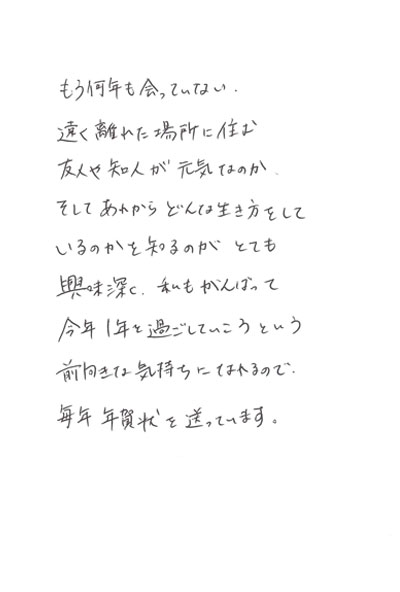 もう何年も会っていない、
遠く離れた場所に住む
友人や知人が元気なのか、
そしてあれからどんな生き方をして
いるのかを知るのがとても
興味深く、私もがんばって
今年1年を過ごしていこうという
前向きな気持ちになれるので、
毎年年賀状を送っています。